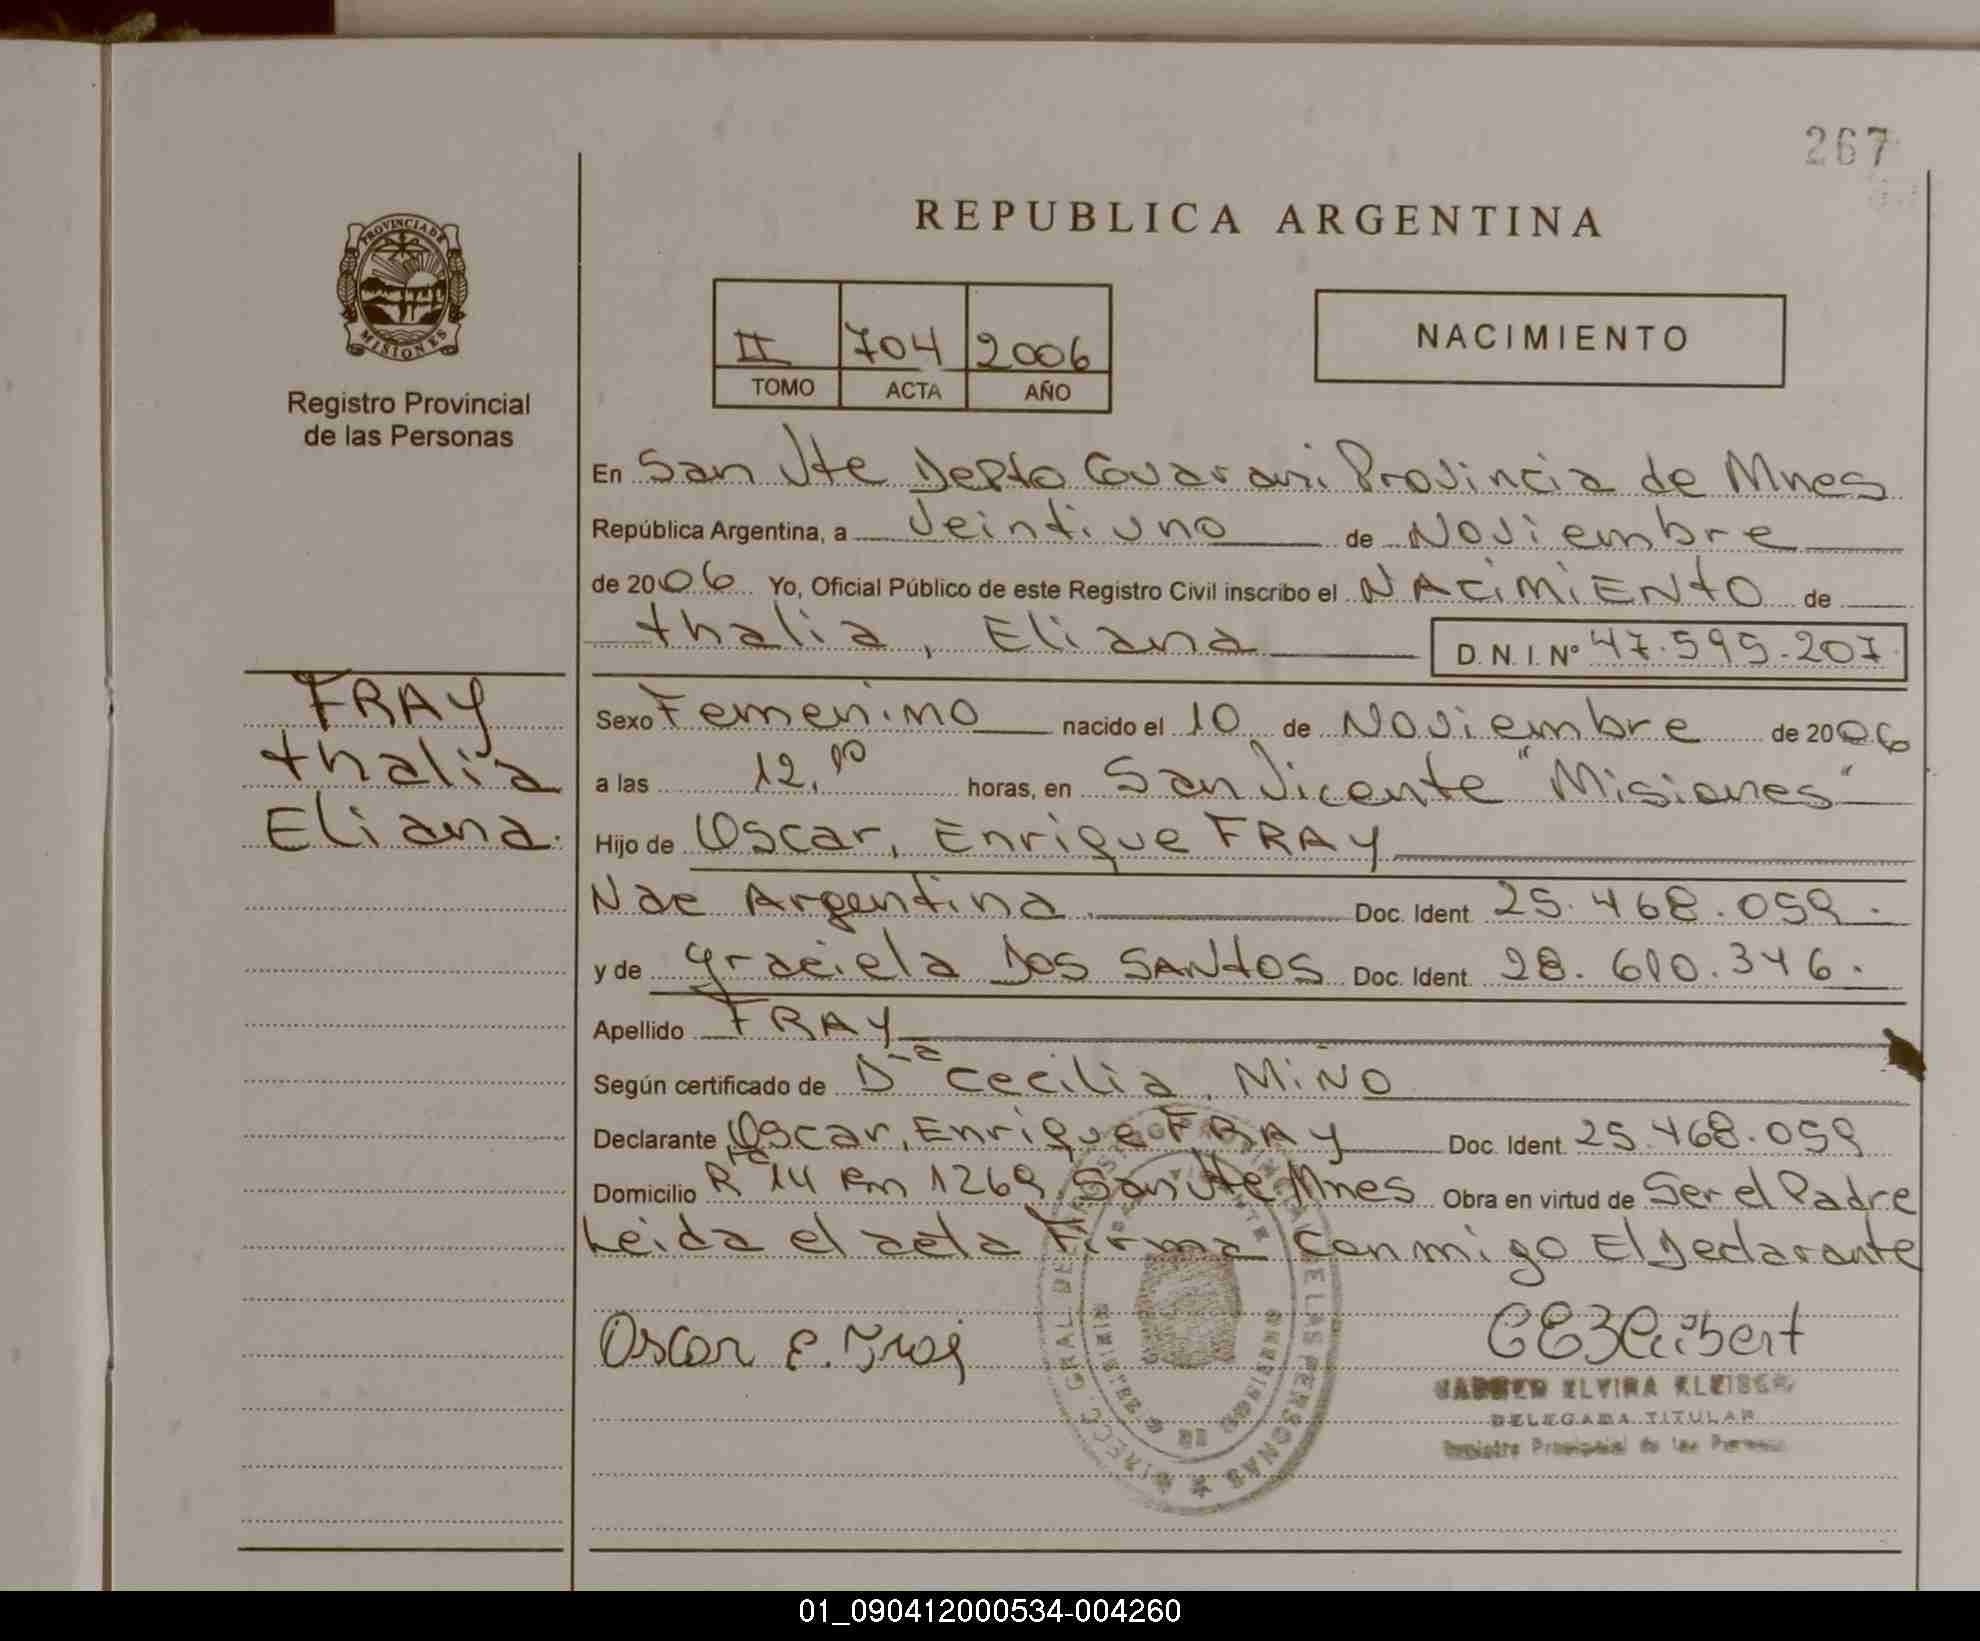 267
PROVINCIA DE
MISIONES
Registro Provincial
de las Personas
REPUBLICA ARGENTINA
II 704 2006
TOMO ACTA AÑO
NACIMIENTO
En San Vte Depto Guarani Provincia de Mnes
República Argentina, a Veintiuno de Noviembre
de 2006 Yo, Oficial Público de este Registro Civil inscribo el NACIMIENTO de
thalia, Eliana D.N.I. Nº 47.595.207
FRAY
thalia
Eliana.
Sexo Femenino nacido el 10 de Noviembre de 2006
a las 12,10 horas, en San Vicente "Misiones"
Hijo de Oscar, Enrique FRAY
Nac Argentina Doc. Ident. 25.468.059.
y de graciela Dos SANtos Doc. Ident. 28.610.346.
Apellido FRAY
Según certificado de Dra Cecilia, MiÑo
Declarante Oscar, Enrique FRAY Doc. Ident. 25.468.059
Domicilio Rta 14 Km 1269 San Vte Mnes Obra en virtud de Ser el Padre
Leida el acta Firma conmigo El Declarante
Oscar E. Fray
ELVIRA
DELEGADA TITULAR
Registro Provincial de las Personas
01_090412000534-004260